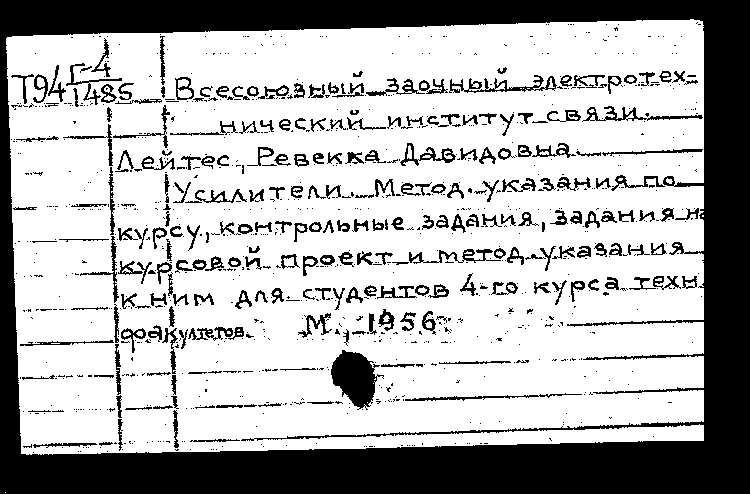 Т94 Г-4/1485 Всесоюзный заочный электротех-
нический институт связи.
Лейтес, Ревекка Давидовна.
Усилители. Метод. указания по
курсу, контрольные задания, задания на
курсовой проект и метод. указания
к ним для студентов 4-го курса техн.
факультетов. М., 1956.